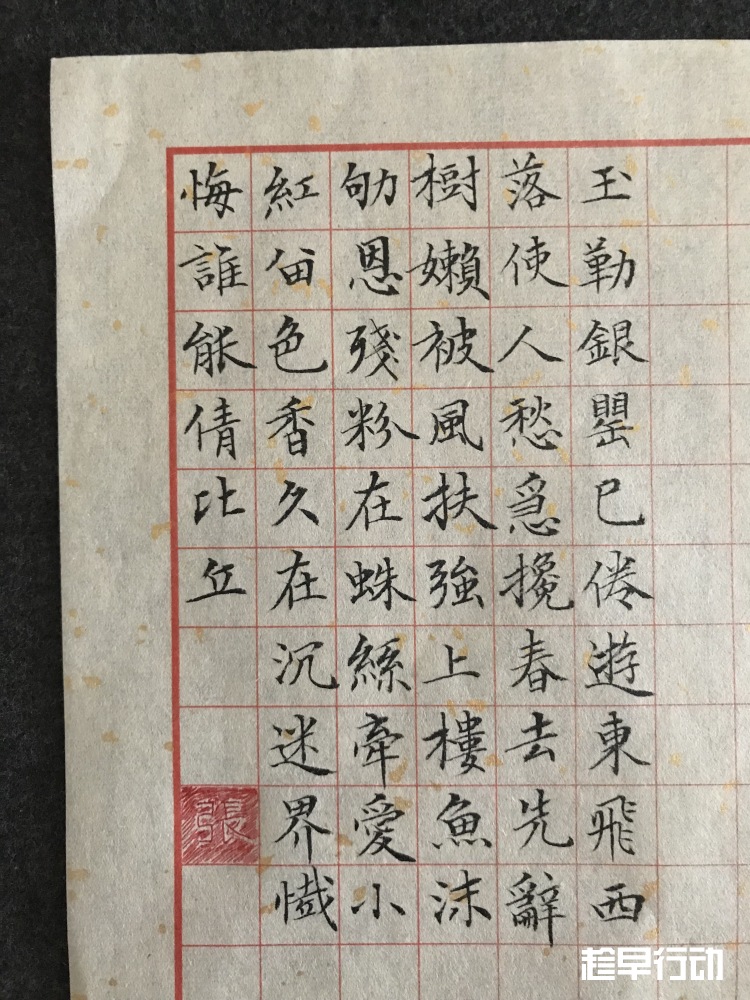 玉勒銀罌已倦遊東飛西
落使人愁急攙春去先辭
樹嬾被風扶強上樓魚沫
劬恩殘粉在蛛絲牽愛小
紅留色香久在沉迷界懺
悔誰能倩比丘
張
趁早行动